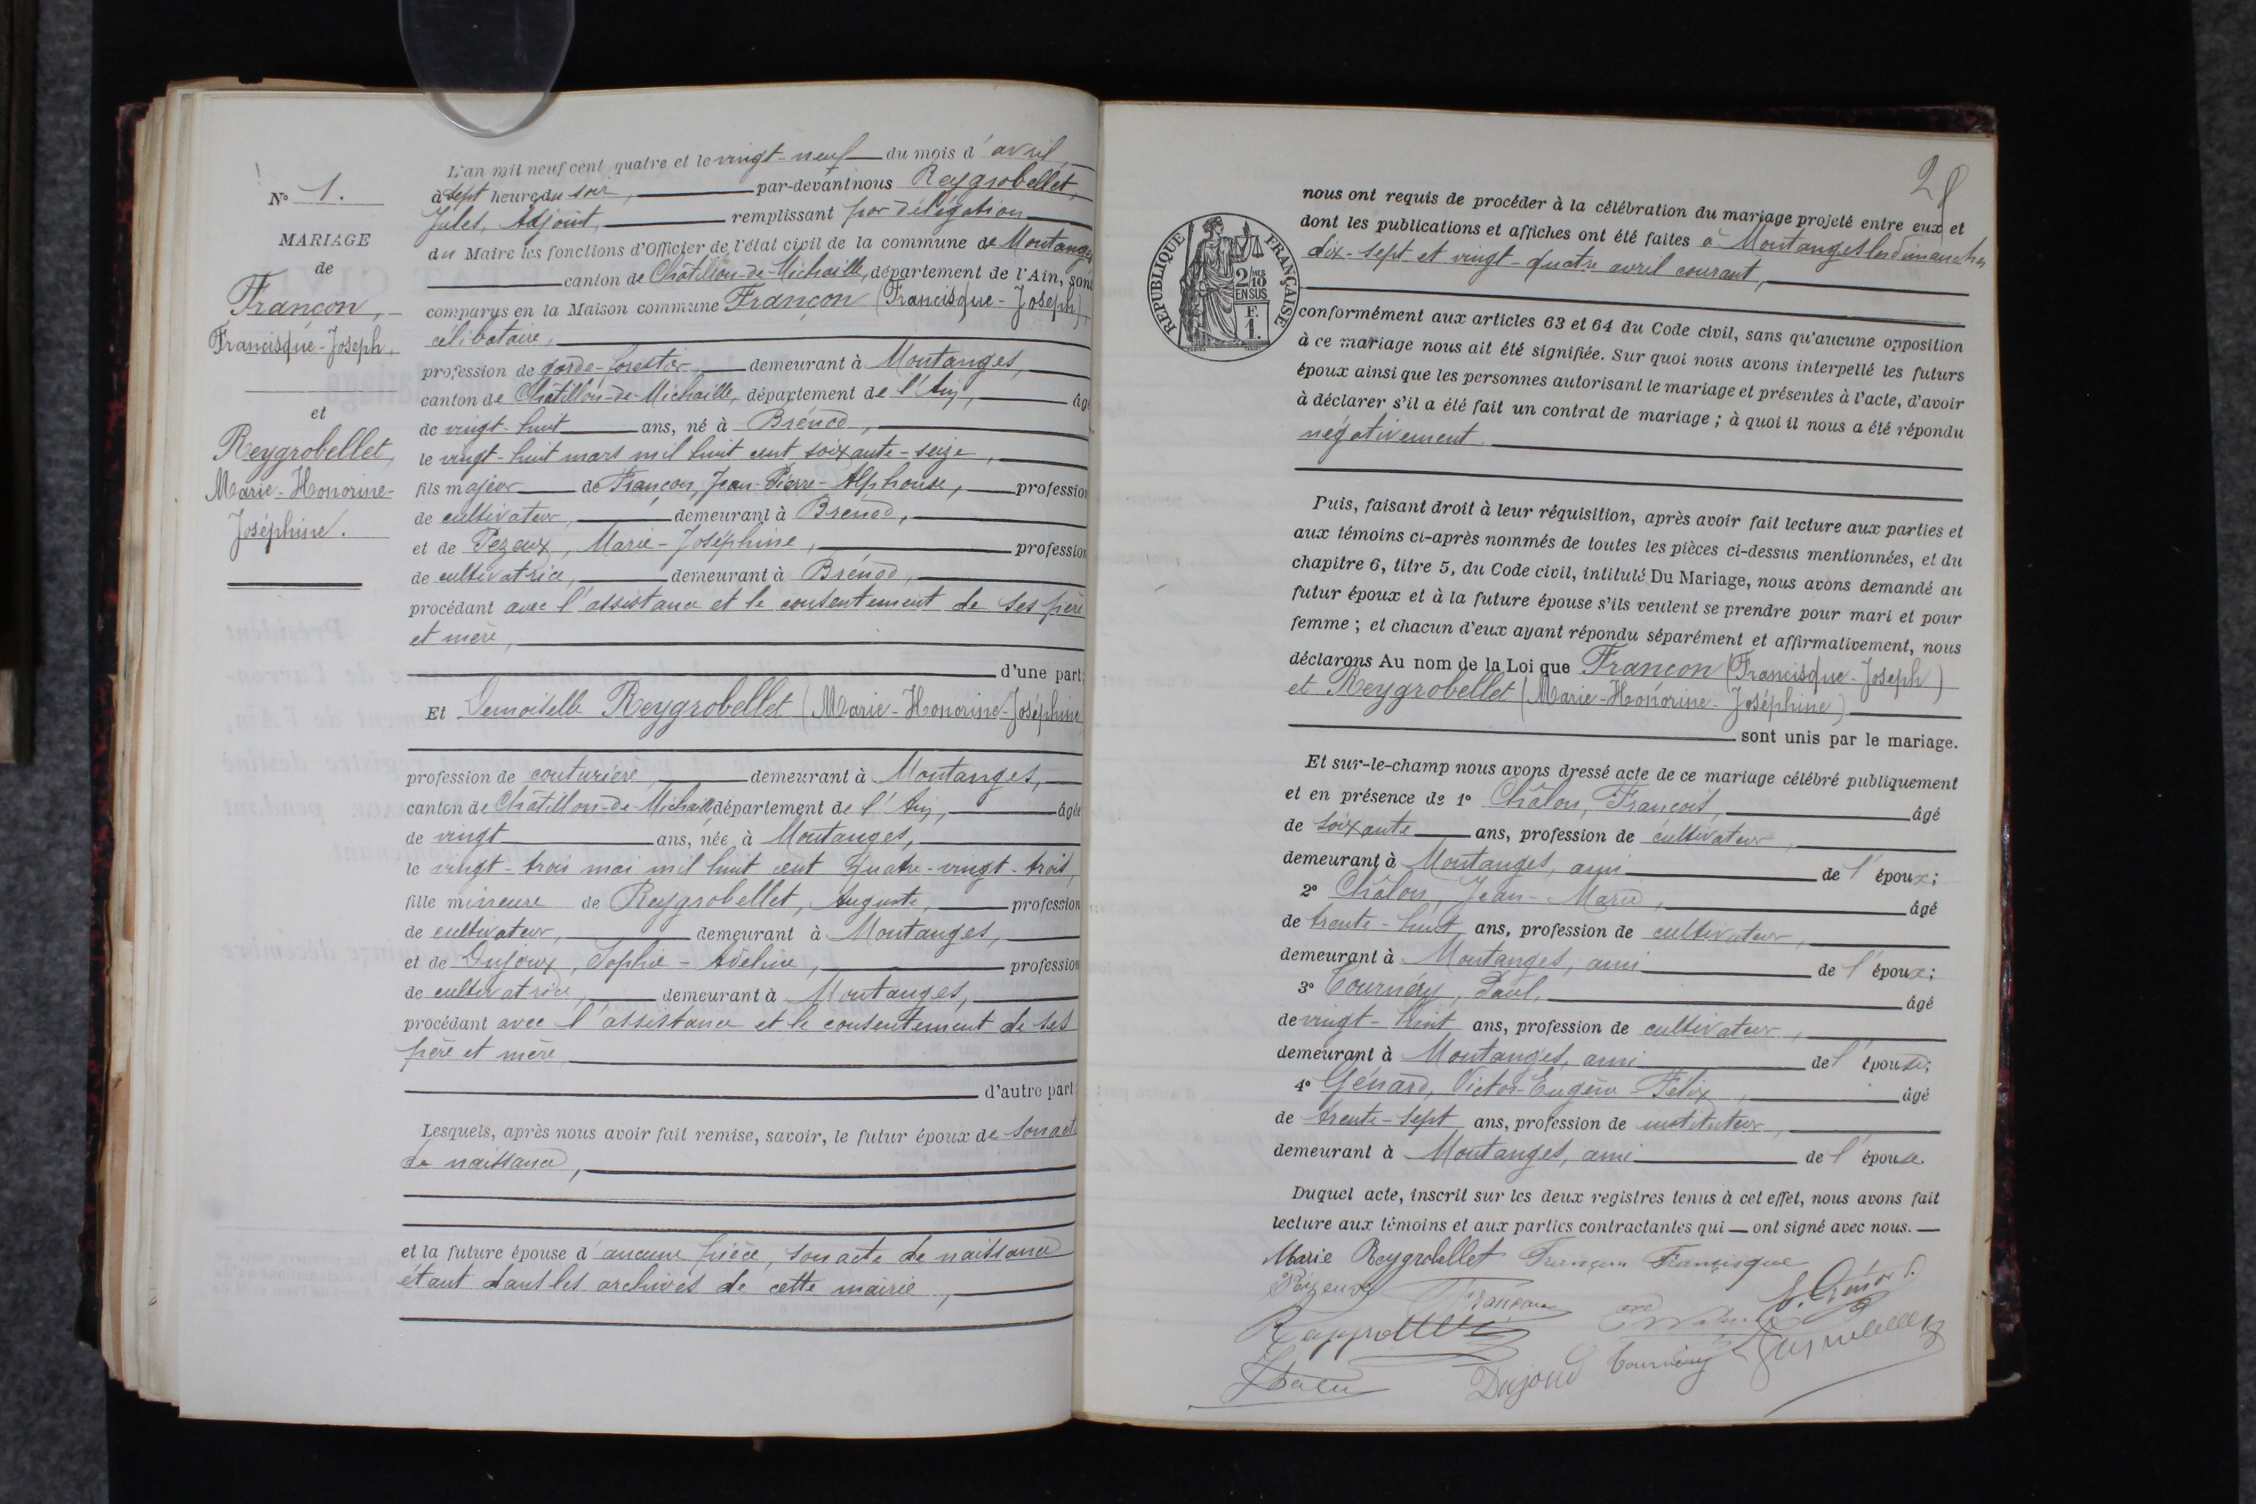 N° 1.
MARIAGE
de
Françon,
Francisque-Joseph,
et
Reygrobellet,
Marie-Honorine-
Joséphine.
L'an mil neuf cent quatre et le vingt-neuf du mois d'avril,
à sept heure du soir, par-devant nous Reygrobellet,
Jules, Adjoint, remplissant par délégation
du Maire les fonctions d'Officier de l'état civil de la commune de Montanges
canton de Châtillon-de-Michaille, département de l'Ain, sont
comparus en la Maison commune Françon (Francisque-Joseph),
célibataire,
profession de garde-forestier, demeurant à Montanges,
canton de Châtillon-de-Michaille, département de l'Ain, âgé
de vingt-huit ans, né à Brénod,
le vingt-huit mars mil huit cent soixante-seize,
fils majeur de Françon, Jean-Pierre-Alphonse, profession
de cultivateur, demeurant à Brénod,
et de Pezeux, Marie-Joséphine, profession
de cultivatrice, demeurant à Brénod,
procédant avec l'assistance et le consentement de ses père
et mère,
d'une part;
Et Demoiselle Reygrobellet (Marie-Honorine-Joséphine)
profession de couturière, demeurant à Montanges,
canton de Châtillon-de-Michaille département de l'Ain, âgée
de vingt ans, née à Montanges,
le vingt-trois mai mil huit cent quatre-vingt-trois,
fille mineure de Reygrobellet, Auguste, profession
de cultivateur, demeurant à Montanges,
et de Dujoux, Sophie-Adeline, profession
de cultivatrice, demeurant à Montanges,
procédant avec l'assistance et le consentement de ses
père et mère,
d'autre part;
Lesquels, après nous avoir fait remise, savoir, le futur époux de son acte
de naissance,
et la future épouse d'aucune pièce, son acte de naissance
étant dans les archives de cette mairie,
28
RÉPUBLIQUE FRANÇAISE
2/10 EN SUS
F. 1.
nous ont requis de procéder à la célébration du mariage projeté entre eux et
dont les publications et affiches ont été faites à Montanges les dimanches
dix-sept et vingt-quatre avril courant,
conformément aux articles 63 et 64 du Code civil, sans qu'aucune opposition
à ce mariage nous ait été signifiée. Sur quoi nous avons interpellé les futurs
époux ainsi que les personnes autorisant le mariage et présentes à l'acte, d'avoir
à déclarer s'il a été fait un contrat de mariage; à quoi il nous a été répondu
négativement
Puis, faisant droit à leur réquisition, après avoir fait lecture aux parties et
aux témoins ci-après nommés de toutes les pièces ci-dessus mentionnées, et du
chapitre 6, titre 5, du Code civil, intitulé Du Mariage, nous avons demandé au
futur époux et à la future épouse s'ils veulent se prendre pour mari et pour
femme; et chacun d'eux ayant répondu séparément et affirmativement, nous
déclarons Au nom de la Loi que Françon (Francisque-Joseph)
et Reygrobellet (Marie-Honorine-Joséphine)
sont unis par le mariage.
Et sur-le-champ nous avons dressé acte de ce mariage célébré publiquement
et en présence de 1° Châlon, François, âgé
de soixante ans, profession de cultivateur,
demeurant à Montanges, ami de l'époux;
2° Châlon, Jean-Marie, âgé
de trente-huit ans, profession de cultivateur,
demeurant à Montanges, ami de l'époux;
3° Tournéry, Paul, âgé
de vingt-huit ans, profession de cultivateur,
demeurant à Montanges, ami de l'épouse;
4° Génard, Victor-Eugène-Félix, âgé
de trente-sept ans, profession de instituteur,
demeurant à Montanges, ami de l'épouse.
Duquel acte, inscrit sur les deux registres tenus à cet effet, nous avons fait
lecture aux témoins et aux parties contractantes qui ont signé avec nous.
Marie Reygrobellet Françon Francisque
Pézeux Françon V. Génard
Dujoud Tournéry